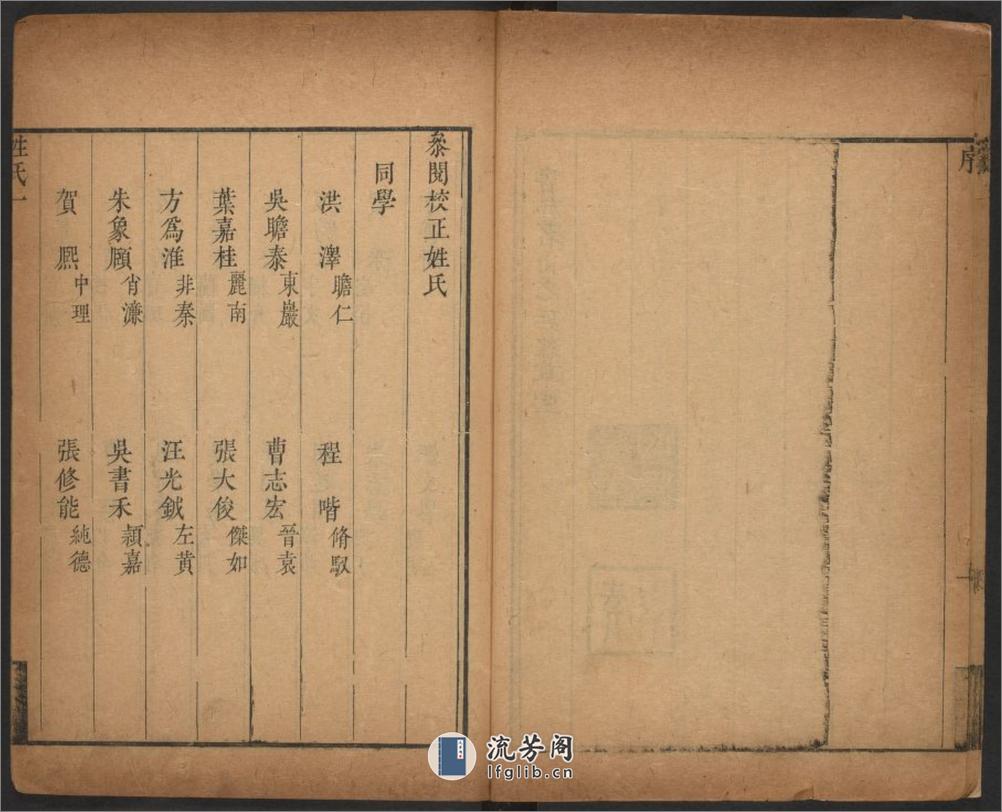 序
叅閱校正姓氏
同學
洪澤瞻仁 程喈脩馭
吳瞻泰東巖 曹志宏晉袁
葉嘉桂麗南 張大俊傑如
方爲淮非秦 汪光鉞左黃
朱象頤肖濂 吳書禾穎嘉
賀熈中理 張修能純德
姓氏一
流芳阁
lfglib.cn